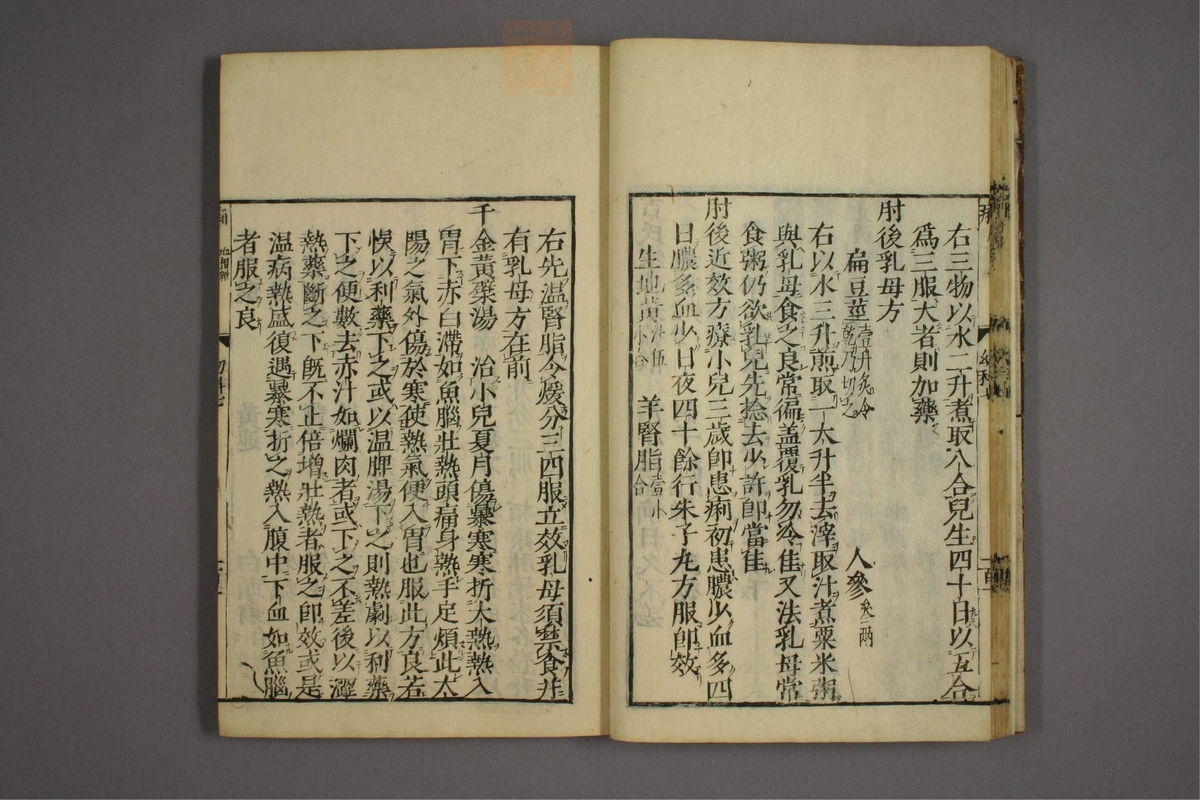 右三物以水二升煮取八合兒生四十日以五合
爲三服大者則加藥
肘後乳母方
扁豆莖壹升炙令乾乃切之 人參炙三兩
右以水三升煎取一大升半去滓取汁煮粟米粥
與乳母食之良常偏盖覆乳勿冷佳又法乳母常
食粥仍欲乳兒先捻去少許即當佳
肘後近效方療小兒三歲即患痢初患膿少血多四
日膿多血少日夜四十餘行朱子丸方服即效
生地黃汁伍小合 羊腎脂壹小合
右先温腎脂令煖分三四服立效乳母須禁食并
有乳母方在前
千金黃檗湯 治小兒夏月傷暴寒寒折大熱熱入
胃下赤白滯如魚腦壯熱頭痛身熱手足煩此太
陽之氣外傷於寒使熱氣便入胃也服此方良若
悞以利藥下之或以温脾湯下之則熱劇以利藥
下之便數去赤汁如爛肉者或下之不差後以澀
熱藥斷之下既不止倍增壯熱者服之即效或是
温病熱盛復遇暴寒折之熱入腹中下血如魚腦
者服之良